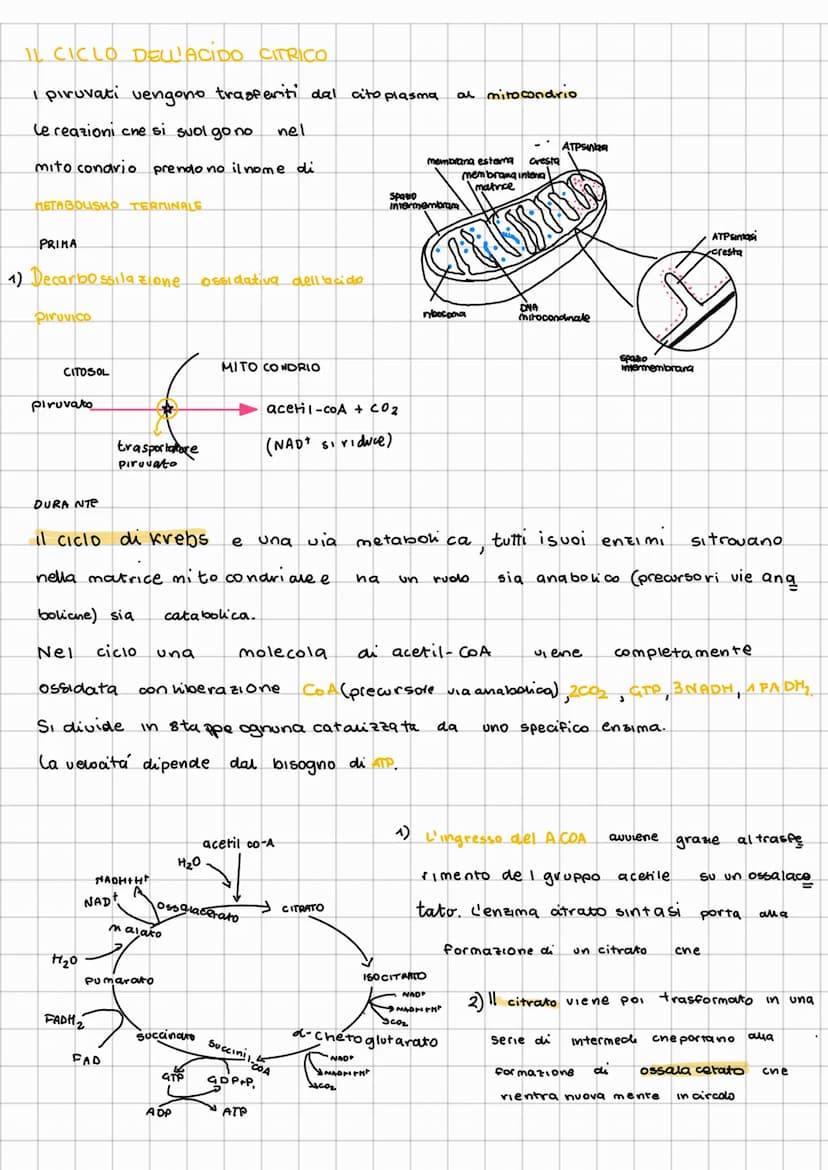 IL CICLO DELL'ACIDO CITRICO
i piruvati vengono trasferiti dal citoplasma al mitocondrio
Le reazioni che si svolgono nel
mitocondrio prendono il nome di
METABOLISMO TERMINALE
PRIMA
1) Decarbossilazione ossidativa dell'acido
piruvico
ATPsintasi
membrana esterna cresta
membrana interna
matrice
spazio
intermembrana
ribosoma
DNA
mitocondriale
ATPsintasi
cresta
spazio
intermembrana
CITOSOL
MITOCONDRIO
piruvato
acetil-coA + CO2
(NAD+ si riduce)
trasportatore
piruvato
DURANTE
il ciclo di Krebs e una via metabolica, tutti i suoi enzimi si trovano
nella matrice mitocondriale e ha un ruolo sia anabolico (precursori vie ana
boliche) sia catabolica.
Nel ciclo una molecola di acetil-CoA viene completamente
ossidata con liberazione CoA (precursore via anabolica), 2CO2, GTP, 3NADH, 1FADH2.
Si divide in 8 tappe ognuna catalizzata da uno specifico enzima.
La velocitá dipende dal bisogno di ATP.
acetil co-A
H2O
NADH+H+
NAD+
ossalacetato
CITRATO
malato
H2O
fumarato
ISOCITRATO
NAD+
NADH+H+
CO2
FADH2
FAD
succinato
succinil
COA
α-chetoglutarato
NAD+
NADH+H+
CO2
GTP
GDP+Pi
ADP
ATP
1) L'ingresso del ACOA avviene grazie al trasfe
rimento del gruppo acetile su un ossalace
tato. L'enzima citrato sintasi porta alla
formazione di un citrato che
2) Il citrato viene poi trasformato in una
serie di intermedi che portano alla
formazione di ossalacetato che
rientra nuovamente in circolo